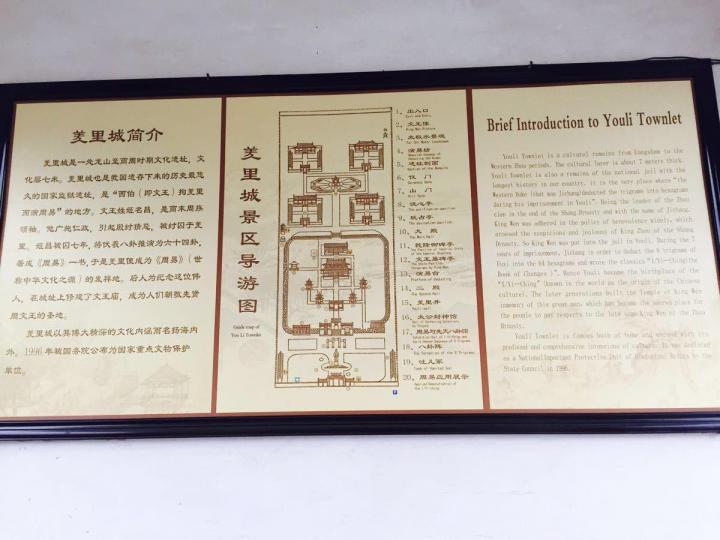 羑里城简介
羑里城是一处龙山至商周时期文化遗址，文
化层七米。羑里城也是我国遗存下来的历史最悠
久的国家监狱遗址，是“西伯（即文王）拘羑里
而演周易”的地方。文王姓姬名昌，是商末周族
领袖。他广施仁政，引起殷纣猜忌，被纣囚于羑
里。姬昌被囚七年，将伏羲八卦推演为六十四卦，
著成《周易》一书，于是羑里便成为《周易》（世
称中华文化之源）的发祥地。后人为纪念这位伟
人，在城址上修建了文王庙，成为人们朝觐先贤
周文王的圣地。
羑里城以其博大精深的文化内涵而名扬海内
外，1996年被国务院公布为国家重点文物保护
单位。
羑里城景区导游图
Guide map of
You Li Townlet
1、出入口
Exit and Entry
2、文王像
King Wen Picture
3、太极水景观
4、演易坊
5、遗址剖面
6、仪门
Ceremony Gate
7、山门
Hill Gate
8、洗心亭
The purification pavilion
9、玩占亭
10、大殿
The Main Hall
11、乾隆御碑亭
12、文王易碑亭
13、演易台
14、二殿
The Second Hall
15、羑里井
Youli well
16、太公封神馆
17、周易与先天八卦馆
18、八卦阵
The formation of the 8 Trigrams
19、吐儿冢
20、周易应用展示
Brief Introduction to Youli Townlet
Youli Townlet is a cultural remains from Longshan to the
Western Zhou periods. The cultural layer is about 7 meters thick.
Youli Townlet is also a remains of the national jail with the
longest history in our country, it is the very place where “the
Western Duke (that was Jichang)deducted the trigrams into hexagrams
during his imprisonment in Youli”. Being the leader of the Zhou
clan in the end of the Shang Dynasty and with the name of Jichang,
King Wen was adhered in the policy of benevolence widely, which
aroused the suspicions and jealousy of King Zhou of the Shang
Dynasty. So King Wen was put into the jail in Youli. During the 7
years of imprisonment, Jichang in order to deduct the 8 trigrams of
Fuxi into the 64 hexagrams and wrote the classics “I/Yi--Ching(the
Book of Changes )”. Hence Youli became the birthplace of the
“I/Yi--Ching” (known in the world as the origin of the Chinese
culture). The later generations built the Temple of King Wen
in memory of this great man, which has become the sacred place for
the people to pay respects to the late sage King Wen of the Zhou
Dynasty.
Youli Townlet is famous both at home and abroad with its
profound and comprehensive intensions of culture. It was dedicated
as a NationalImportant Protective Unit of Historical Relics by the
State Council in 1996.